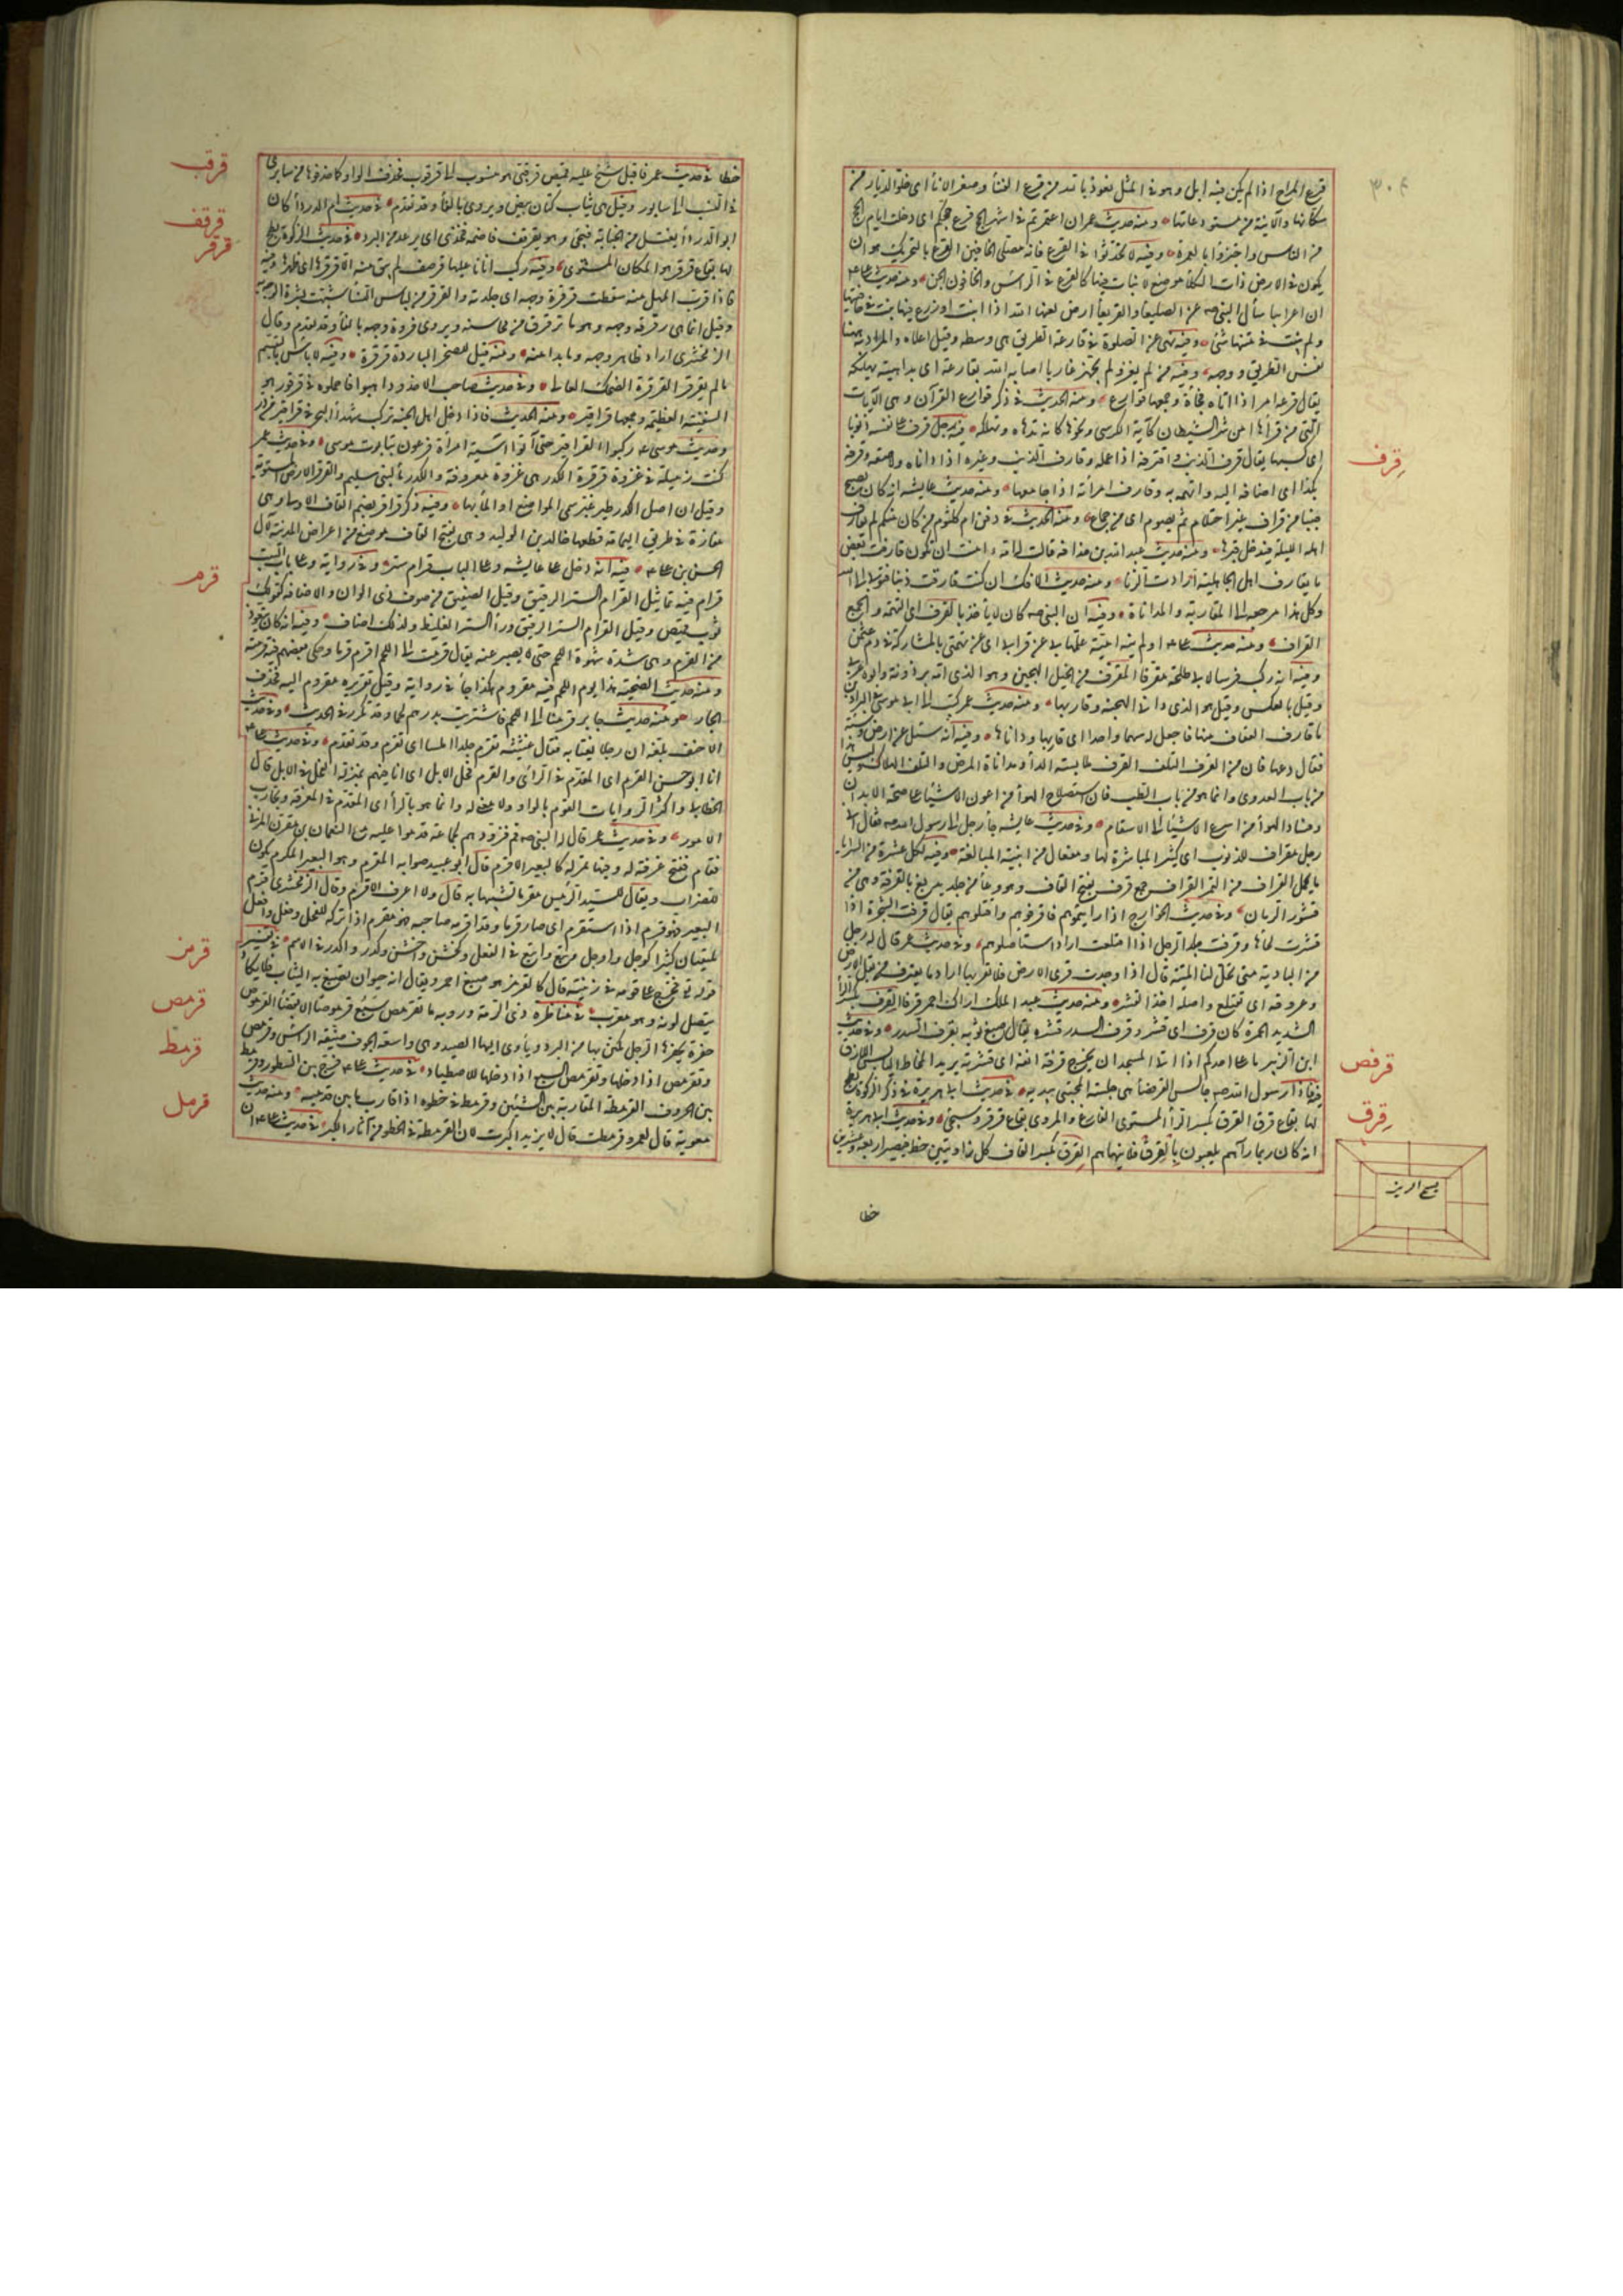 ٣٠٤
قرع المراح اذا لم يكن فيه ابل وهو في المثل نعوذ بالله من قرع الفناء وصفر الاناء اى خلو الديار من
سكانها والآنية من مستودعاتها ومنه حديث عمر ان اعتمرتم في اشهر الحج قرع حجكم اى خلت ايام الحج
من الناس واجتزؤا بالعمرة وفيه لا تحدثوا في القرع فانه مصلى الخافين القرع بالتحريك هو ان
يكون في الارض ذات الكلأ موضع لا نبات فيها كالقرع في الرأس والخافون الجن ومنه حديث علي
ان اعرابيا سأل النبي صم عن الصليعاء والقريعاء ارض لعنها الله اذا انبتت او زرع فيها نبت في حافتيها
ولم ينبت في متنها شئ وفيه نهى عن الصلوة في قارعة الطريق هى وسطه وقيل اعلاه والمراد به ههنا
نفس الطريق ووجهه وفيه من لم يغز ولم يجهز غازيا اصابه الله بقارعة اى بداهية تهلكه
يقال قرعه امر اذا اتاه فجأة وجمعها قوارع ومنه الحديث في ذكر قوارع القرآن وهى الآيات
التى من قرأها امن شر الشيطان كآية الكرسى ونحوها كانه تدهاه وتهلكه فيه رجل قرف على نفسه ذنوبا
قرف
اى كسبها يقال قرف الذنب واقترفه اذا عمله وقارف الذنب وغيره اذا داناه ولاصقه وقرفه
بكذا اى اضافه اليه واتهمه به وقارف امرأته اذا جامعها ومنه حديث عايشه انه كان يصبح
جنبا من قراف غير احتلام ثم يصوم اى من جماع ومنه الحديث في دفن ام كلثوم من كان منكم لم يقارف
اهله الليلة فيدخل قبرها ومنه حديث عبد الله بن حذافه قالت له امه امنت ان تكون قارفت بعض
ما يقارف اهل الجاهلية ارادت الزنا ومنه حديث الافك ان كنت قارفت ذنبا فتوبى الى الله
وكل هذا مرجعه الى المقاربة والمداناة وفيه ان النبي صم كان لا يأخذ بالقرف اى التهمة والجمع
القراف ومنه حديث على اولم ينه امية علمها بى عن قرافى اى عن تهمتى بالمشاركة في دم عثمن
وفيه انه ركب فرسا لابى طلحة مقرفا المقرف من الخيل الهجين وهو الذى امه برذونة وابوه عربى
وقيل بالعكس وقيل هو الذى دانى الهجنة وقاربها ومنه حديث عمر كتب الى ابى موسى في البراذين
ما قارف العتاق منها فاجعل له سهما واحدا اى قاربها وداناها وفيه انه سئل عن ارض وبئة
فقال دعها فان من القرف التلف القرف ملابسة الداء ومداناة المرض والتلف الهلاك وليس هذا
من باب العدوى وانما هو من باب الطب فان استصلاح الهواء من اعون الاشياء على صحة الابدان
وفساد الهواء من اسرع الاشياء الى الاسقام وفي حديث عايشه جاء رجل الى رسول الله صم فقال انى
رجل مقراف للذنوب اى كثير المباشرة لها ومفعال من ابنية المبالغة وفيه لكل عشرة من السرايا
ما يحمل القراف من التمر القراف جمع قرف بفتح القاف وهو وعاء من جلد يدبغ بالقرفة وهى من
قشور الرمان وفي حديث الخوارج اذا رايتموهم فاقرفوهم واقتلوهم يقال قرفت الشجرة اذا
قشرت لحاءها وقرفت جلد الرجل اذا اقتلعته اراد استأصلوهم وفي حديث عمر قال له رجل
من البادية متى تحل لنا الميتة قال اذا وجدت قرف الارض فلا تقربها اراد ما يقترف من بقل الارض
وعروقه اى يقتلع واصله اخذ القشر ومنه حديث عبد الملك اراك احمر قرفا القرف بكسر الراء
الشديد الحمرة كانه قرف اى قشر وقرف السدر قشره يقال صبغ ثوبه بقرف السدر وفي حديث
ابن الزبير ما على احدكم اذا اتى المسجد ان يخرج قرفة انفه اى قشرته يريد المخاط اليابس اللازق
قرفص
فيه فاذا رسول الله صم جالس القرفصاء هى جلسة المحتبى بيديه في حديث ابى هريرة في ذكر الزكوة بطح
قرق
لها بقاع قرق القرق بكسر الراء المستوى الفارغ والمروى بقاع قرقر وسيجئ وفي حديث ابى هريرة
انه كان ربما رآهم يلعبون بالقرق فلا ينهاهم القرق بكسر القاف كل زاويتين خط فيصير اربعة وعشرين
خطا
قرقب
خطا في حديث عمر فاقبل شيخ عليه قميص قرقبى هو منسوب الى قرقوب فحذفت الواو كما حذفوها من سابرى
في النسب الى سابور وقيل هى ثياب كتان بيض ويروى بالفاء وقد تقدم في حديث ام الدرداء كان
قرقف
ابو الدرداء يغتسل من الجنابة فيجئ وهو يقرقف فاضمه بين فخذى اى يرعد من البرد في حديث الزكوة بطح
قرقر
لها بقاع قرقر هو المكان المستوى وفيه ركب اتانا عليها قرصف لم يبق منه الا قرقرها اى ظهرها وفيه
فاذا قرب المهل منه سقطت قرقرة وجهه اى جلدته والقرقر من لباس النساء شبهت بشرة الوجه به
وقيل انما هى رقرقة وجهه وهو ما ترقرق من محاسنه ويروى فروة وجهه بالفاء وقد تقدم وقال
الزمخشرى اراد ظاهر وجهه وما بدا منه ومنه قيل للصحراء البارزة قرقرة وفيه لا بأس بالتبسم
ما لم يقرقر القرقرة الضحك العالى وفي حديث صاحب الاخدود اذهبوا فاحملوه في قرقور هو
السفينة العظيمة وجمعها قراقير ومنه الحديث فاذا دخل اهل الجنة الجنة ركب شهداء البحر في قراقير من در
وحديث موسى ركبوا القراقير حتى اتوا آسية امرأة فرعون بتابوت موسى وفي حديث عمر
كنت زميله في غزوة قرقرة الكدر هى غزوة معروفة والكدر ماء لبنى سليم والقرقر الارض المستوية
وقيل ان اصل الكدر طير غبر سمى الموضع او الماء بها وفيه ذكر قراقر بضم القاف الاولى وهى
مفازة في طريق اليمامة قطعها خالد بن الوليد وهى بفتح القاف موضع من اعراض المدينة لآل
قرم
الحسن بن على فيه انه دخل على عايشه وعلى الباب قرام ستر وفي رواية وعلى باب البيت
قرام فيه تماثيل القرام الستر الرقيق وقيل الصفيق من صوف ذى الوان والاضافة كقولك
ثوب قميص وقيل القرام الستر الرقيق وراء الستر الغليظ ولذلك اضاف وفيه انه كان يتعوذ
من القرم وهى شدة شهوة اللحم حتى لا يصبر عنه يقال قرمت الى اللحم اقرم قرما وحكى بعضهم فيه قرمته
ومنه حديث الضحية هذا يوم اللحم فيه مقروم هكذا جاء في رواية وقيل تقديره مقروم اليه فحذف
الجار ومنه حديث جابر قرمنا الى اللحم فاشتريت بدرهم لحما وقد تكرر في الحديث وفي حديث
الاحنف بلغه ان رجلا يغتابه فقال عثيثة تقرم جلدا املسا اى تقرض وقد تقدم وفي حديث على
انا ابو حسن القرم اى المقدم في الرأى والقرم فحل الابل اى انا فيهم بمنزلة الفحل في الابل قال
الخطابى واكثر الروايات القوم بالواو ولا معنى له وانما هو بالراء اى المقدم في المعرفة وتجارب
الامور وفي حديث عمر قال له النبي صم قم فزودهم لجماعة قدموا عليه مع النعمان بن مقرن المزنى
فقام ففتح غرفة له فيها تمر كالبعير الاقرم قال ابو عبيد صوابه المقرم وهو البعير المكرم يكون
للضراب ويقال للسيد الرئيس مقرم تشبيها به قال ولا اعرف الاقرم وقال الزمخشرى قرم
البعير فهو قرم اذا استقرم اى صار قرما وقد اقرمه صاحبه فهو مقرم اذا تركه للفحلة وفعل وافعل
قرمز
يلتقيان كثيرا كوجل واوجل وتبع واتبع في الفعل وكخشن واخشن وكدر واكدر في الاسم في تفسير
قوله تع فخرج على قومه في زينته قال كالقرمز هو صبغ احمر ويقال انه حيوان تصبغ به الثياب فلا يكاد
قرمص
ينصل لونه وهو معرب في مناظرة ذى الرمة ورؤبه ما تقرمص سبع قرموصا الا بقضاء القرموص
حفرة يحفرها الرجل يكتن بها من البرد ويأوى اليها الصيد وهى واسعة الجوف ضيقة الرأس وقرمص
قرمط
وتقرمص اذا دخلها وتقرمص السبع اذا دخلها للاصطياد في حديث على فرج بين السطور وقرمط
بين الحروف القرمطة المقاربة بين الشيئين وقرمط في خطوه اذا قارب ما بين قدميه ومنه حديث
قرمل
معوية قال لعمرو قرمطت قال لا يريد اكبرت لان القرمطة في الخطو من آثار الكبر في حديث على ان